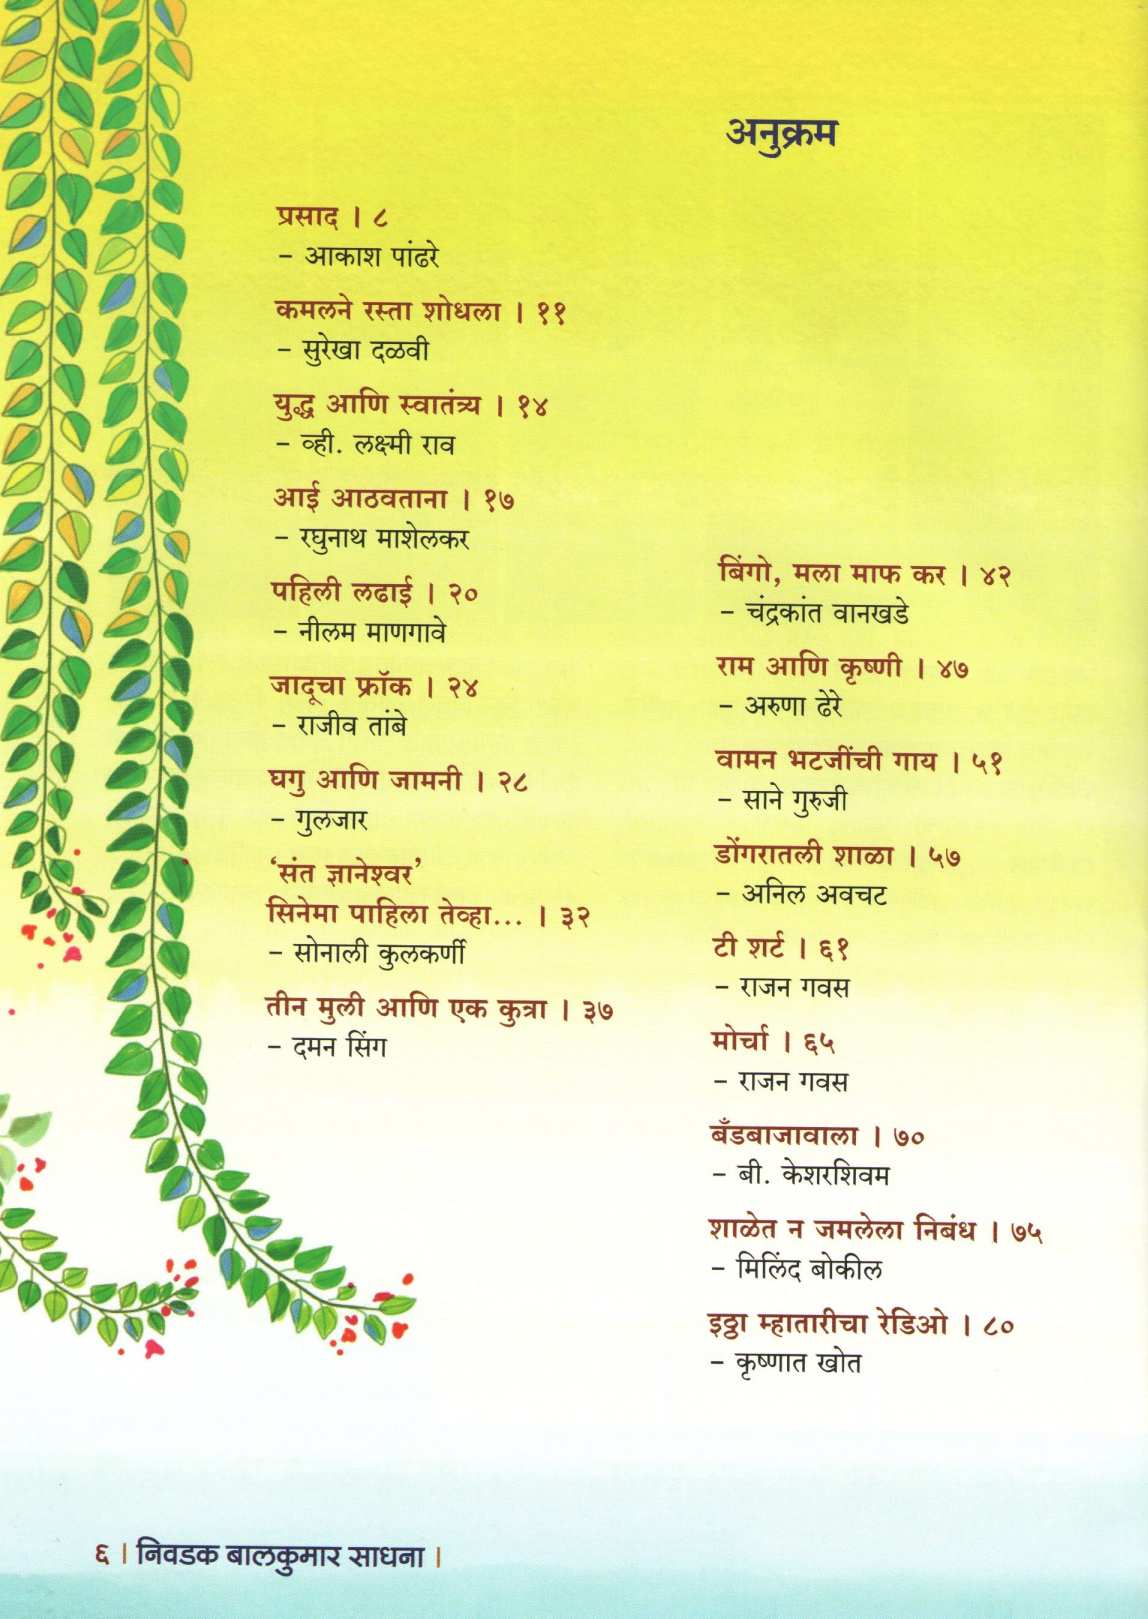 अनुक्रम
प्रसाद । ८
– आकाश पांढरे
कमलने रस्ता शोधला । ११
– सुरेखा दळवी
युद्ध आणि स्वातंत्र्य । १४
– व्ही. लक्ष्मी राव
आई आठवताना । १७
– रघुनाथ माशेलकर
पहिली लढाई । २०
– नीलम माणगावे
जादूचा फ्रॉक । २४
– राजीव तांबे
घगु आणि जामनी । २८
– गुलजार
‘संत ज्ञानेश्वर’
सिनेमा पाहिला तेव्हा... । ३२
– सोनाली कुलकर्णी
तीन मुली आणि एक कुत्रा । ३७
– दमन सिंग
बिंगो, मला माफ कर । ४२
– चंद्रकांत वानखडे
राम आणि कृष्णी । ४७
– अरुणा ढेरे
वामन भटजींची गाय । ५१
– साने गुरुजी
डोंगरातली शाळा । ५७
– अनिल अवचट
टी शर्ट । ६१
– राजन गवस
मोर्चा । ६५
– राजन गवस
बँडबाजावाला । ७०
– बी. केशरशिवम
शाळेत न जमलेला निबंध । ७५
– मिलिंद बोकील
इठ्ठा म्हातारीचा रेडिओ । ८०
– कृष्णात खोत
६ । निवडक बालकुमार साधना ।